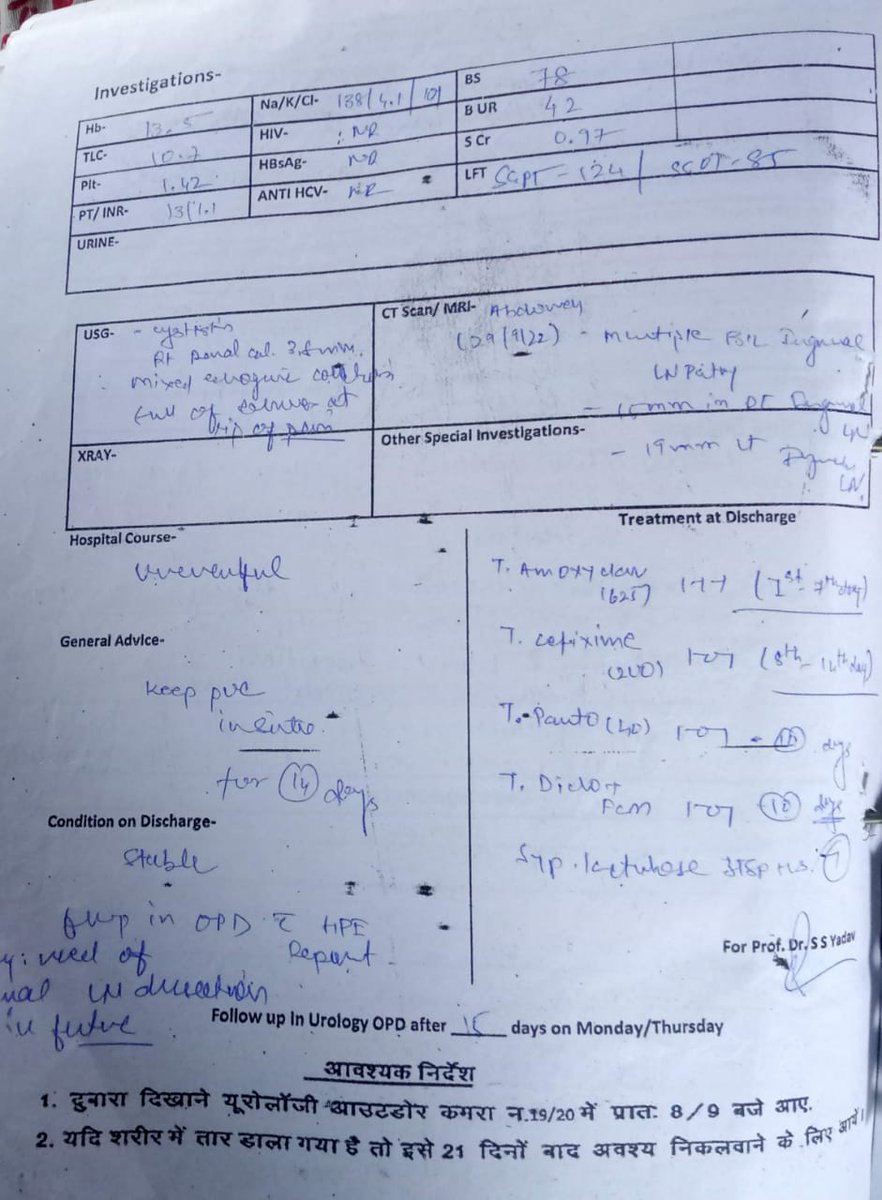 Investigations-
Hb- 13.5
TLC- 10.7
Plt- 1.42
PT/ INR- 13/1.1
Na/K/Cl- 138/4.1/101
HIV- : NR
HBsAg- NR
ANTI HCV- NR
BS 78
B UR 42
S Cr 0.97
LFT SGPT-124 / SGOT-85
URINE-
USG- - cystitis
Rt renal cal. 3.8mm.
mixed
full of at
tip of penis
CT Scan/ MRI- Abdomen
(29/9/22) - Multiple B/L Inguinal
LN Pathy
- 15mm in Rt Inguinal
LN
XRAY-
Other Special Investigations-
- 19mm Lt Inguinal
LN.
Hospital Course-
uneventful
General Advice-
Keep PUC
insitu.
for 14 days
Condition on Discharge-
Stable
in OPD c HPE
need of Report
LN dissection
in future
Treatment at Discharge
T. Amoxyclav
(625) 1-1-1 (1st - 7th day)
T. cefixime
(200) 1-0-1 (8th - 14th day)
T. Panto (40) 1-0-1 - days
T. Diclo +
PCM 1-0-1 days
Syp. lactulose 3TSP HS.
For Prof. Dr. S S Yadav
Follow up In Urology OPD after 15 days on Monday/Thursday
आवश्यक निर्देश
1. दुबारा दिखाने यूरोलॉजी आउटडोर कमरा न.19/20 में प्रातः 8/9 बजे आए.
2. यदि शरीर में तार डाला गया है तो इसे 21 दिनों बाद अवश्य निकलवाने के लिए आवें।